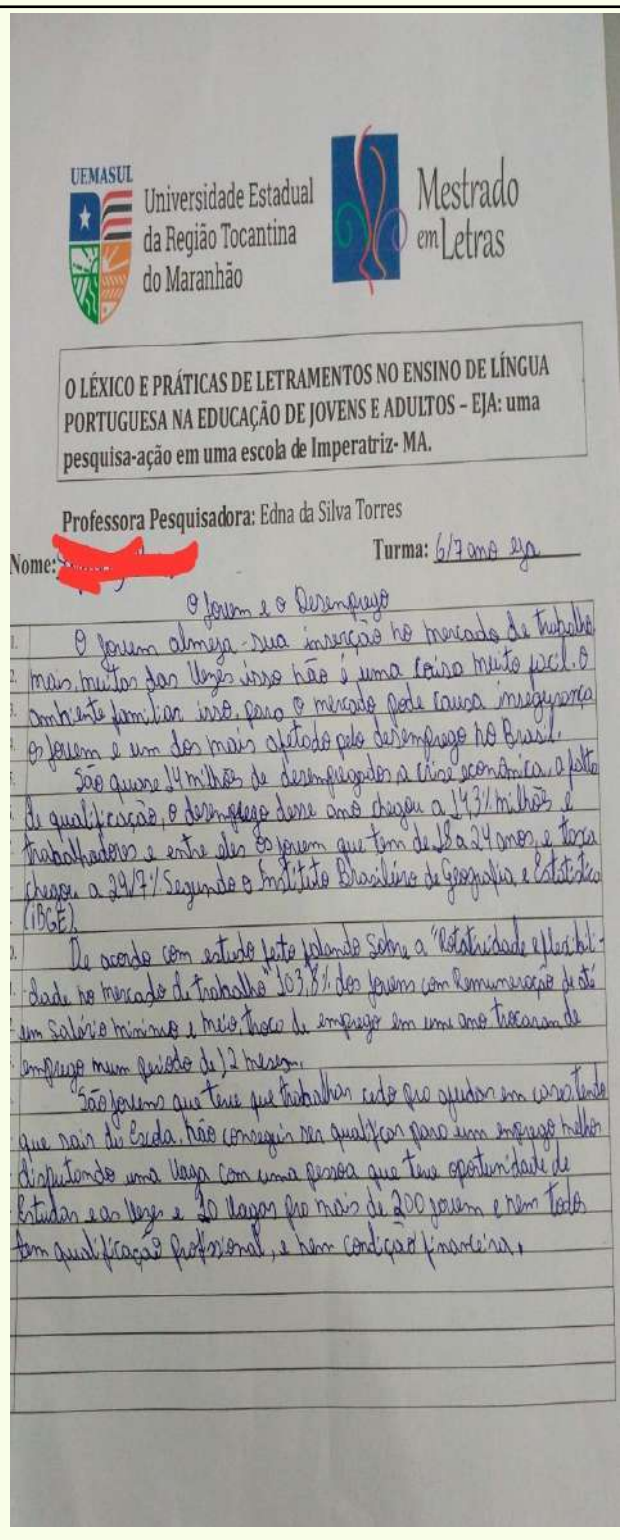 UEMASUL
Universidade Estadual
da Região Tocantina
do Maranhão
Mestrado
em Letras
O LÉXICO E PRÁTICAS DE LETRAMENTOS NO ENSINO DE LÍNGUA
PORTUGUESA NA EDUCAÇÃO DE JOVENS E ADULTOS – EJA: uma
pesquisa-ação em uma escola de Imperatriz- MA.
Professora Pesquisadora: Edna da Silva Torres
Nome:
Turma: 6/7 ano eja
O Jovem e o Desemprego
O jovem almeja-sua inserção no mercado de trabalho
mais, muitas das vezes isso não é uma coisa muito facil. O
ambiente familiar isso, para o mercado pode causa insegurança
os jovem e um dos mais afetado pelo desemprego no Brasil.
São quase 14 milhões de desempregados a crise econômica, a falta
de qualificação, o desemprego desse ano chegou a 14,3% milhões é
trabalhadores e entre eles os jovem que tem de 18 a 24 anos, e taxa
chegou a 29/7% Segundo o Instituto Brasileiro de Geografia, e Estatística
(iBGE).
De acordo com estudo feito falando sobre a "Rotatividade e flexibili-
dade no mercado de trabalho" 103,8% dos jovens com Remuneração de até
um Salário minimo e meio, troca de emprego em um ano trocaram de
emprego num periodo de 12 meses,
São jovens que teve que trabalhar cedo pro ajudar em casa tendo
que sair du Escola, não conseguir ser qualificar para um emprego melhor
disputando uma Vaga com uma pessoa que teve oportunidade de
Estudar e as Vezes e 20 Vagas pro mais de 200 jovem e nem todos
tem qualificação profissional, e nem condição financeira.